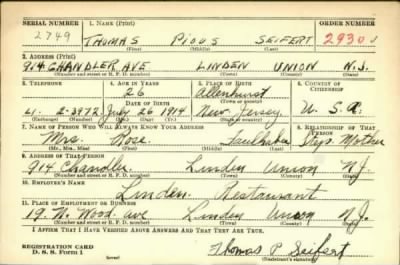 SERIAL NUMBER 1. NAME (Print) ORDER NUMBER
2749 THOMAS PIOUS SEIFERT 2930
(First) (Middle) (Last)
2. ADDRESS (Print)
914 CHANDLER AVE LINDEN UNION N.J.
(Number and street or R. F. D. number) (Town) (County) (State)
3. TELEPHONE 4. AGE IN YEARS 5. PLACE OF BIRTH 6. COUNTRY OF CITIZENSHIP
26 Allenhurst
DATE OF BIRTH (Town or county)
LI- 2-3972 July 26 1914 New Jersey U. S. A.
(Exchange) (Number) (Mo.) (Day) (Yr.) (State or country)
7. NAME OF PERSON WHO WILL ALWAYS KNOW YOUR ADDRESS 8. RELATIONSHIP OF THAT PERSON
Mrs. Rose Mother
(Mr., Mrs., Miss) (First) (Middle) (Last)
9. ADDRESS OF THAT PERSON
914 Chandler Linden Union N.J.
(Number and street or R. F. D. number) (Town) (County) (State)
10. EMPLOYER'S NAME
Linden Restaurant
11. PLACE OF EMPLOYMENT OR BUSINESS
19 N. Wood ave Linden Union N.J.
(Number and street or R. F. D. number) (Town) (County) (State)
I AFFIRM THAT I HAVE VERIFIED ABOVE ANSWERS AND THAT THEY ARE TRUE.
REGISTRATION CARD
D. S. S. Form 1 (over) Thomas P Seifert
(Registrant's signature)